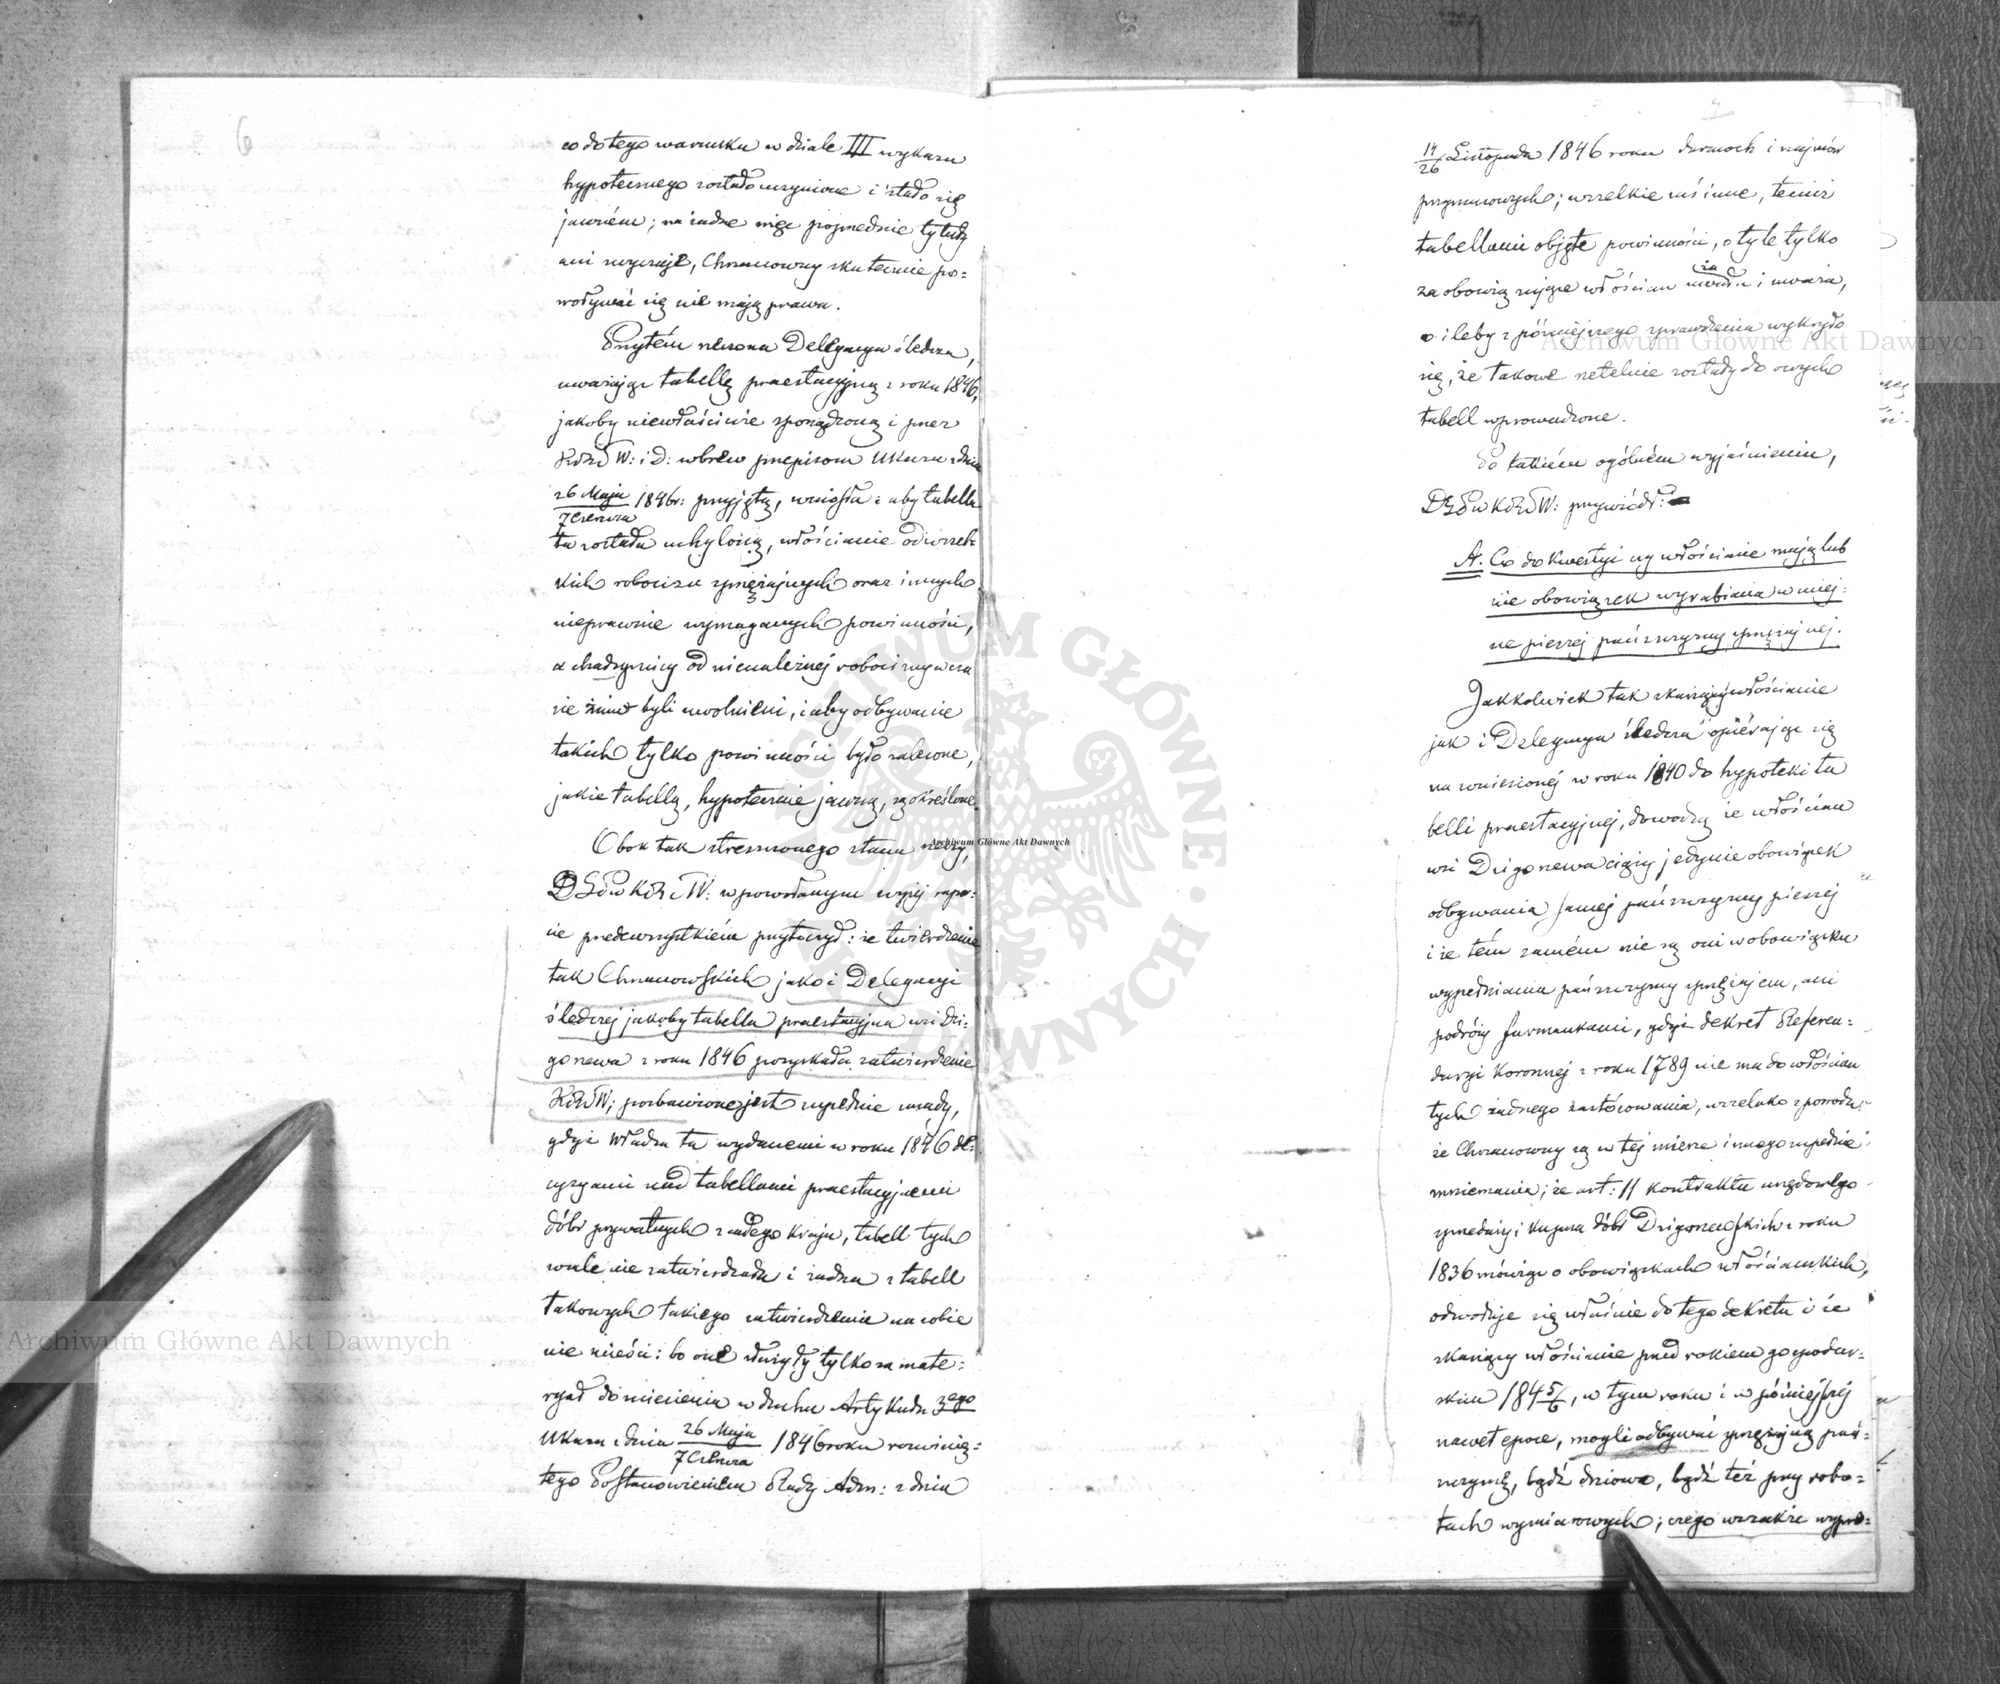 6
co do tego warunku w dziale III wykazu
hypotecznego zostało uczynione i stało się
jawném; na żadne więc poprzednie tytuły
ani zwyczaje, Chrzanowscy skutecznie po=
woływać się nie mają prawa.
Przytém rzeczona Delegacya śledcza,
uważając tabellę praestacyjną z roku 1846,
jakoby niewłaściwie sporządzoną i przez
KRSW: i D: wbrew przepisom Ukazu z dnia
26 Maja
7 Czerwca 1846 r: przyjętą, wniosła: aby tabella
ta została uchyloną, włościanie od wszel=
kich robocizn sprzężajnych oraz innych
nieprawnie wymaganych powinności,
a chałupnicy od nienależnéj robocizny w cza
sie żniw byli uwolnieni, i aby odbywanie
takich tylko powinności było zalecone,
jakie tabellą, hypotecznie jawną, są określone.
Obok tak streszczonego stanu rzeczy,
w powołanym wyżéj rapo=
cie przedewszystkiém przytoczył: że twierdzenie
tak Chrzanowskich jako i Delegacyi
śledczéj jakoby tabella praestacyjna wsi Dzi=
gorzewa z roku 1846 pozyskała zatwierdzenie
KRSW; pozbawione jest zupełnie zasady,
gdyż Władza ta wydanemi w roku 1846 de=
cyzyami nad tabellami praestacyjnemi
dóbr prywatnych z całego kraju, tabell tych
wcale nie zatwierdzała i żadna z tabell
takowych takiego zatwierdzenia na sobie
nie mieści: bo one służyły tylko za mate=
ryał do wniesienia w duchu Artykułu 3ego
Ukazu z dnia 26 Maja
7 Czerwca 1846 roku rozwinię=
tego Postanowieniem Rady Adm: z dnia
7
14
26 Listopada 1846 roku darmoch i najmów
przymusowych; wszelkie zaś inne, temiż
tabellami objęte powinności, o tyle tylko
za obowiązujące włościan uważała i uważa,
za
o ileby z późniejszego sprawdzenia wykryło
się, że takowe rzetelnie zostały do owych
tabell wprowadzone.
Po takiém ogólném wyjaśnieniu,
przywiódł:
A. Co do Kwestyi czy włościanie mają lub
nie obowiązek wyrabiania w miej=
sce pieszéj pańszczyzny sprzężajnéj.
Jakkolwiek tak skarżący włościanie
jak i Delegacya śledcza opiérając się
na wniesionéj w roku 1840 do hypoteki ta
belli praestacyjnéj, dowodzą że włościan
wsi Dzigorzewa ciąży jedynie obowiązek
odbywania samej pańszczyzny pieszéj
i że tém samém nie są oni w obowiązku
wypełniania pańszczyzny sprzężajem, ani
podróży furmankami, gdyż dekret Referen=
daryi Koronnej z roku 1789 nie ma do włościan
tych żadnego zastósowania, wszelako z powodu:
że Chrzanowscy są w tej mierze innego zupełnie
mniemania; że art: 11 kontraktu urzędowego
sprzedaży i kupna dóbr Dzigorzewskich z roku
1836 mówiąc o obowiązkach włościańskich,
odwołuje się właśnie do tego dekretu i że
skarżący włościanie przed rokiem gospodar=
skim 1845/6, w tym roku i w późniejszéj
nawet epoce, mogli odbywać sprzężajną pań=
szczyznę, bądź dniową, bądź też przy robo=
tach wymiarowych; czego wszakże wypro=
Archiwum Główne Akt Dawnych
Archiwum Główne Akt Dawnych
Archiwum Główne Akt Dawnych
ARCHIWUM GŁÓWNE AKT DAWNYCH